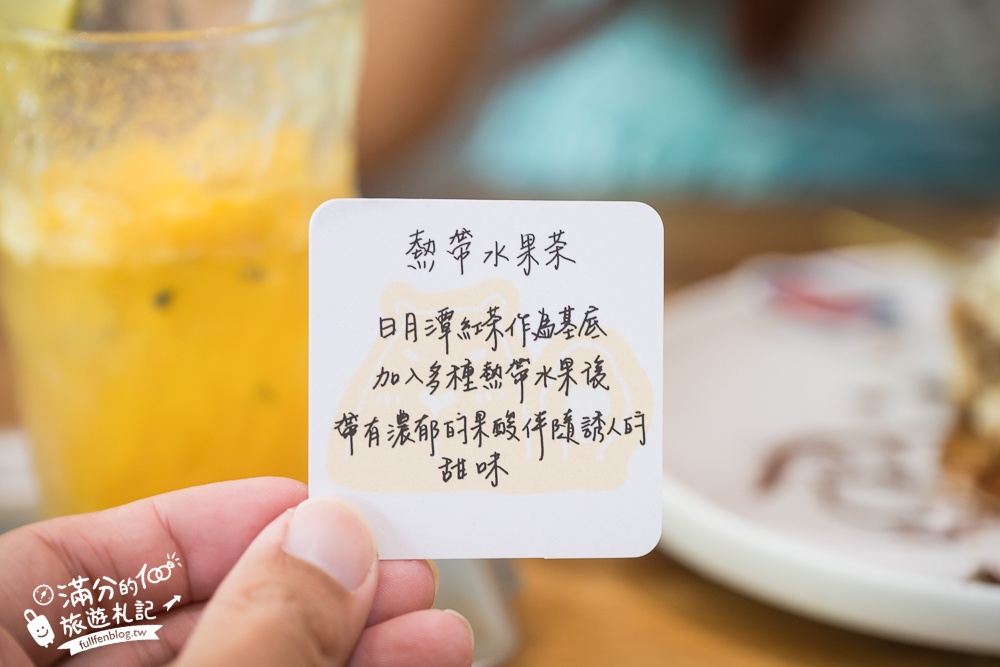 熱帶水果茶
日月潭紅茶作為基底
加入多種熱帶水果後
帶有濃郁的果酸伴隨誘人的
甜味
滿分的100
旅遊札記
fullfenblog.tw